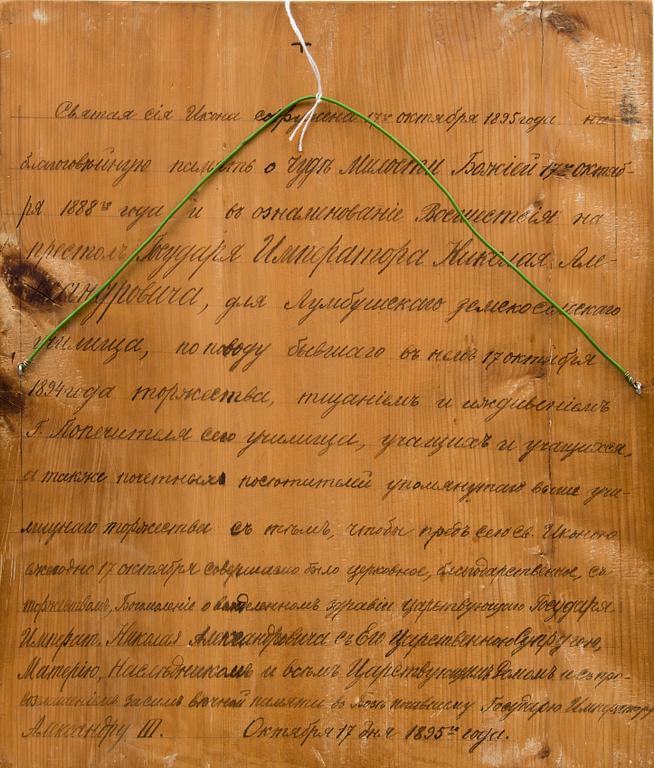 Святая сія Икона сооружена 17го октября 1895 года на
благоговѣйную память о чудѣ Милости Божіей 17го октяб-
ря 1888го года и въ ознаменованіе Восшествія на
престолъ Государя Императора Николая Але-
ксандровича, для Лумбушскаго земскосельскаго
училища, по поводу бывшаго въ немъ 17 октября
1894 года торжества, тщаніемъ и иждивеніемъ
Г. Попечителя сего училища, учащихъ и учащихся,
а также почетныхъ посѣтителей упомянутаго выше учи-
лищнаго торжества съ тѣмъ, чтобы предъ сею св. Иконою
ежегодно 17 октября совершаемо было церковное, благодарственное, съ
торжествомъ, Богомоленіе о вожделенномъ здравіи царствующаго Государя
Императ. Николая Александровича съ Его царственною Супругою,
Матерію, Наслѣдникомъ и всѣмъ Царствующимъ Домомъ и съ про-
возглашеніемъ засимъ вѣчной памяти въ Бозѣ почившему Государю Императору
Александру III. Октября 17 дня 1895го года.